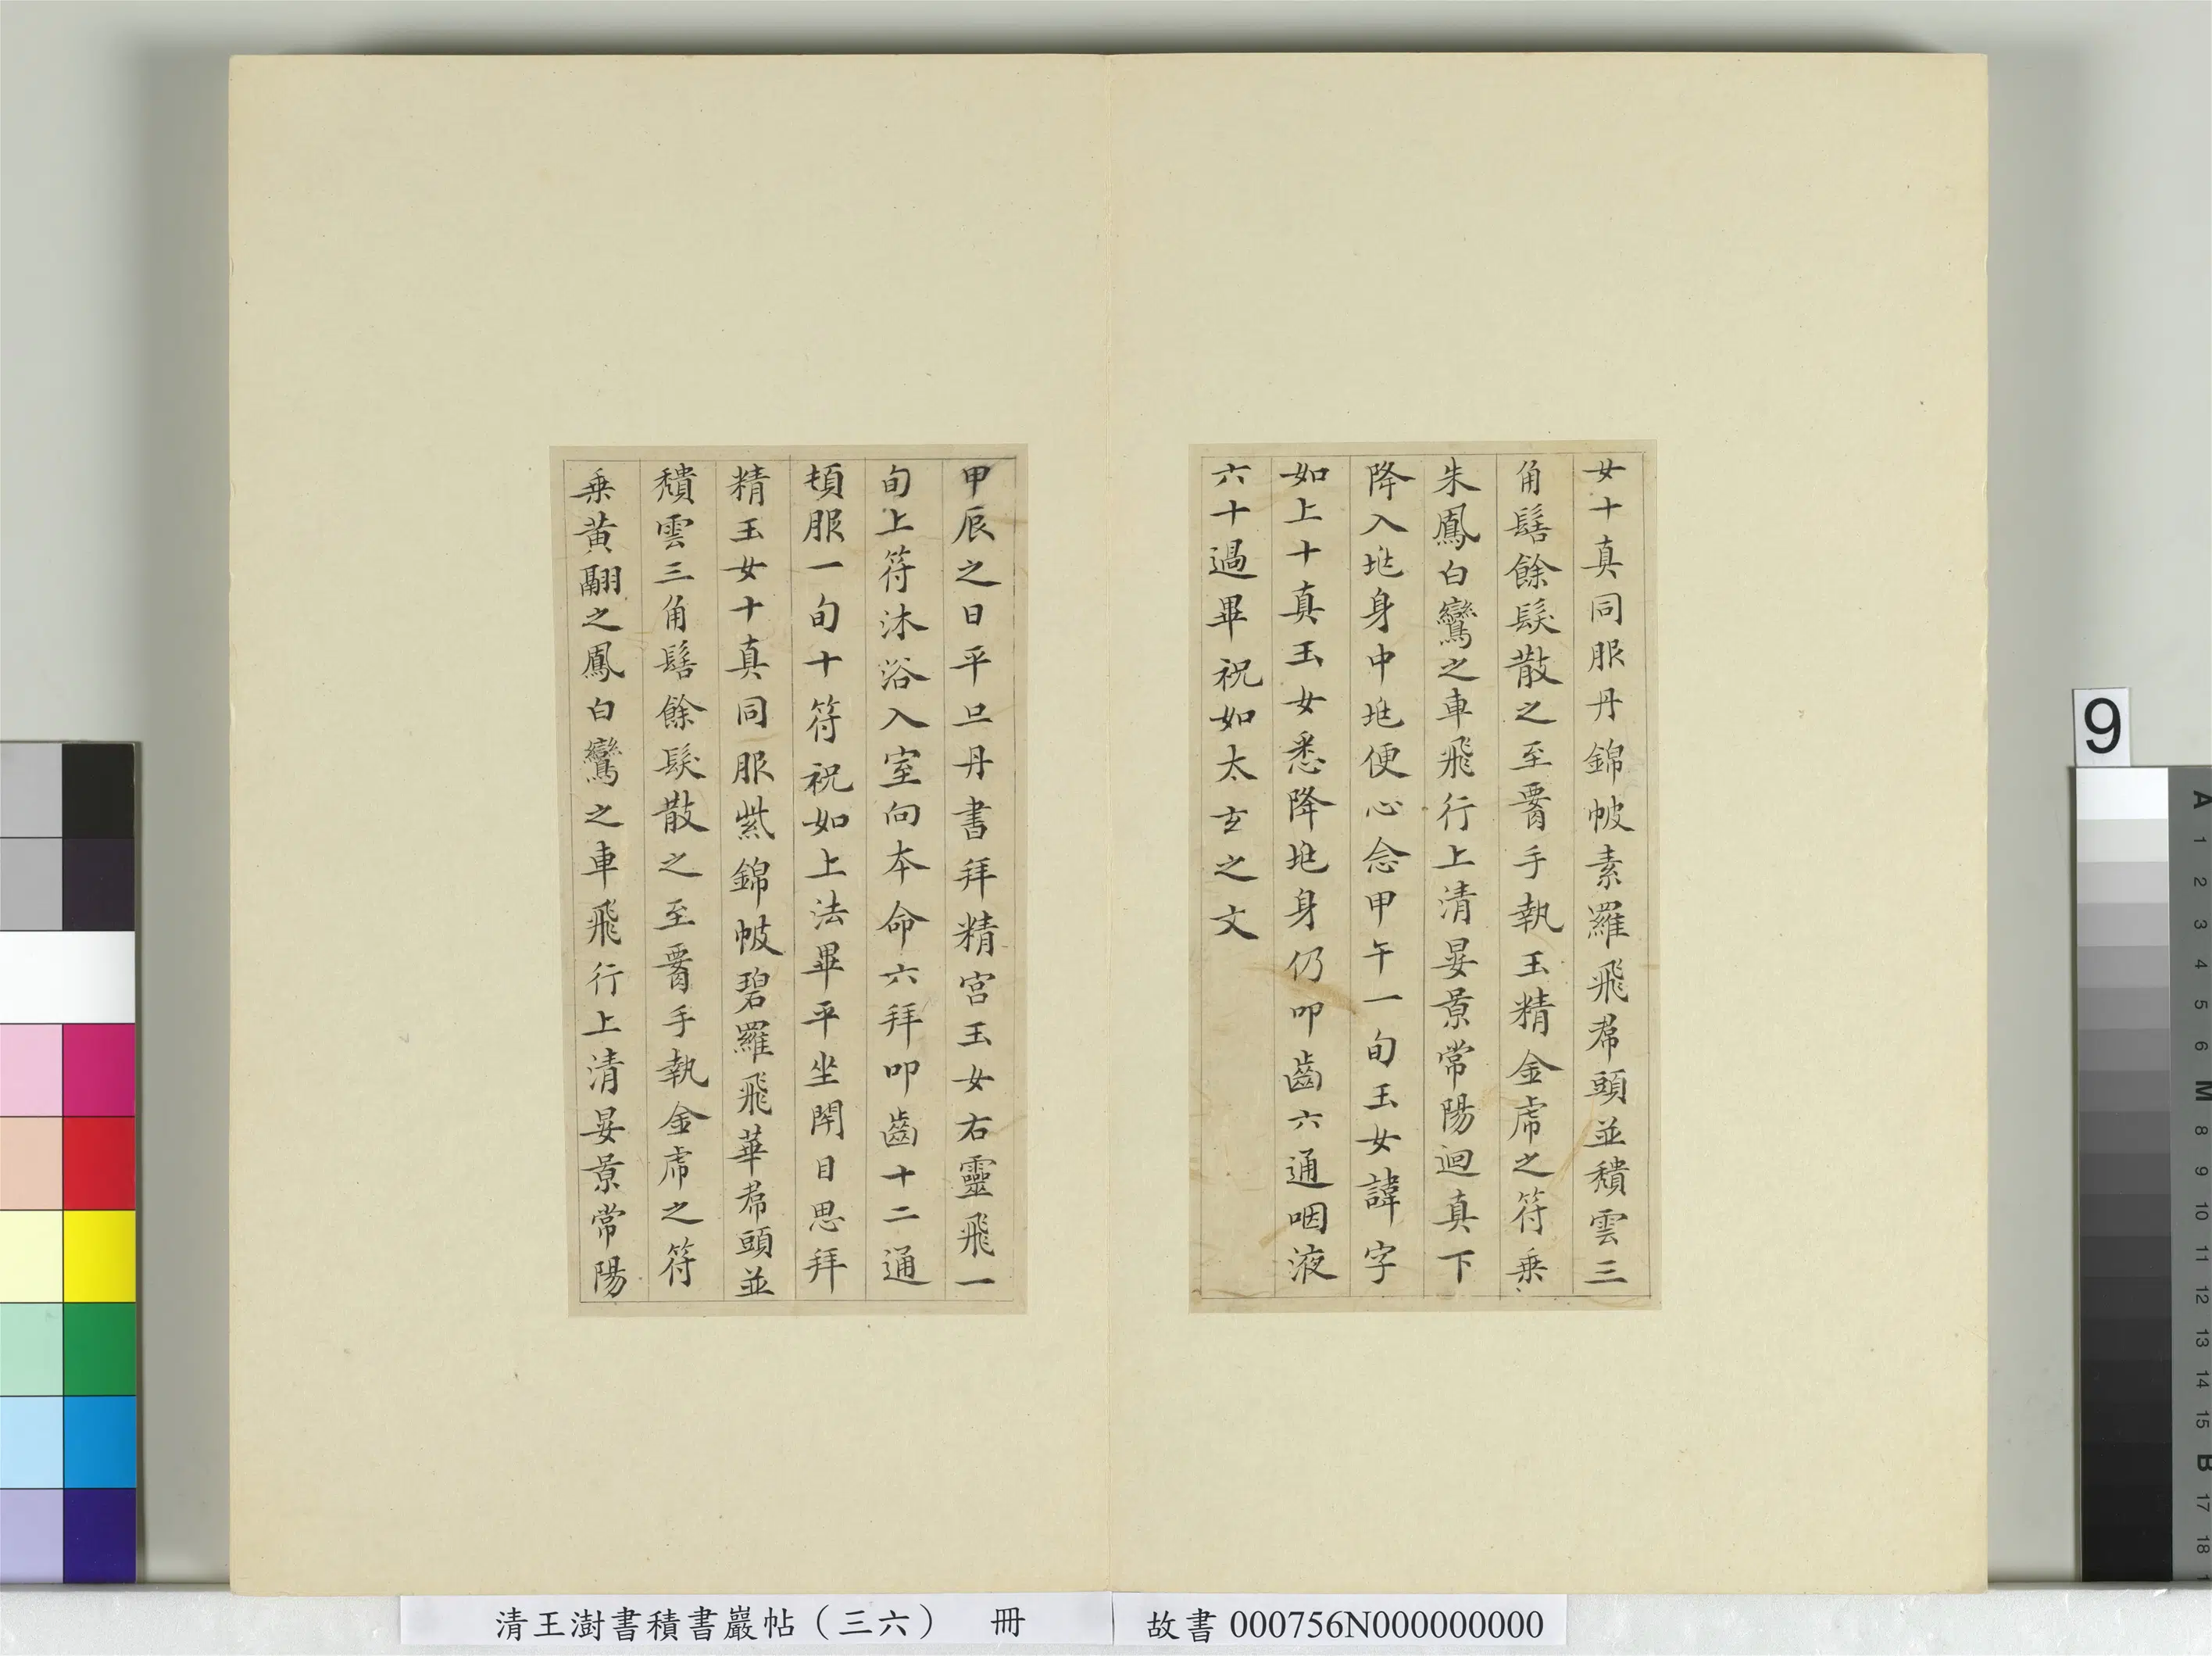 女十真同服丹錦帔素羅飛帬頭並穨雲三
角髻餘髮散之至𦝫手執玉精金虎之符乗
朱鳳白鸞之車飛行上清晏景常陽迴真下
降入𡉏身中𡉏便心念甲午一旬玉女諱字
如上十真玉女悉降𡉏身仍叩齒六通咽液
六十過畢祝如太玄之文
甲辰之日平旦丹書拜精宫玉女右靈飛一
旬上符沐浴入室向本命六拜叩齒十二通
頓服一旬十符祝如上法畢平坐閇目思拜
精玉女十真同服紫錦帔碧羅飛華帬頭並
穨雲三角髻餘髮散之至𦝫手執金虎之符
乗黄翮之鳳白鸞之車飛行上清晏景常陽
清王澍書積書巖帖（三六） 冊
故書 000756N000000000
9
A
1
2
3
4
5
6
M
8
9
10
11
12
13
14
15
B
17
18